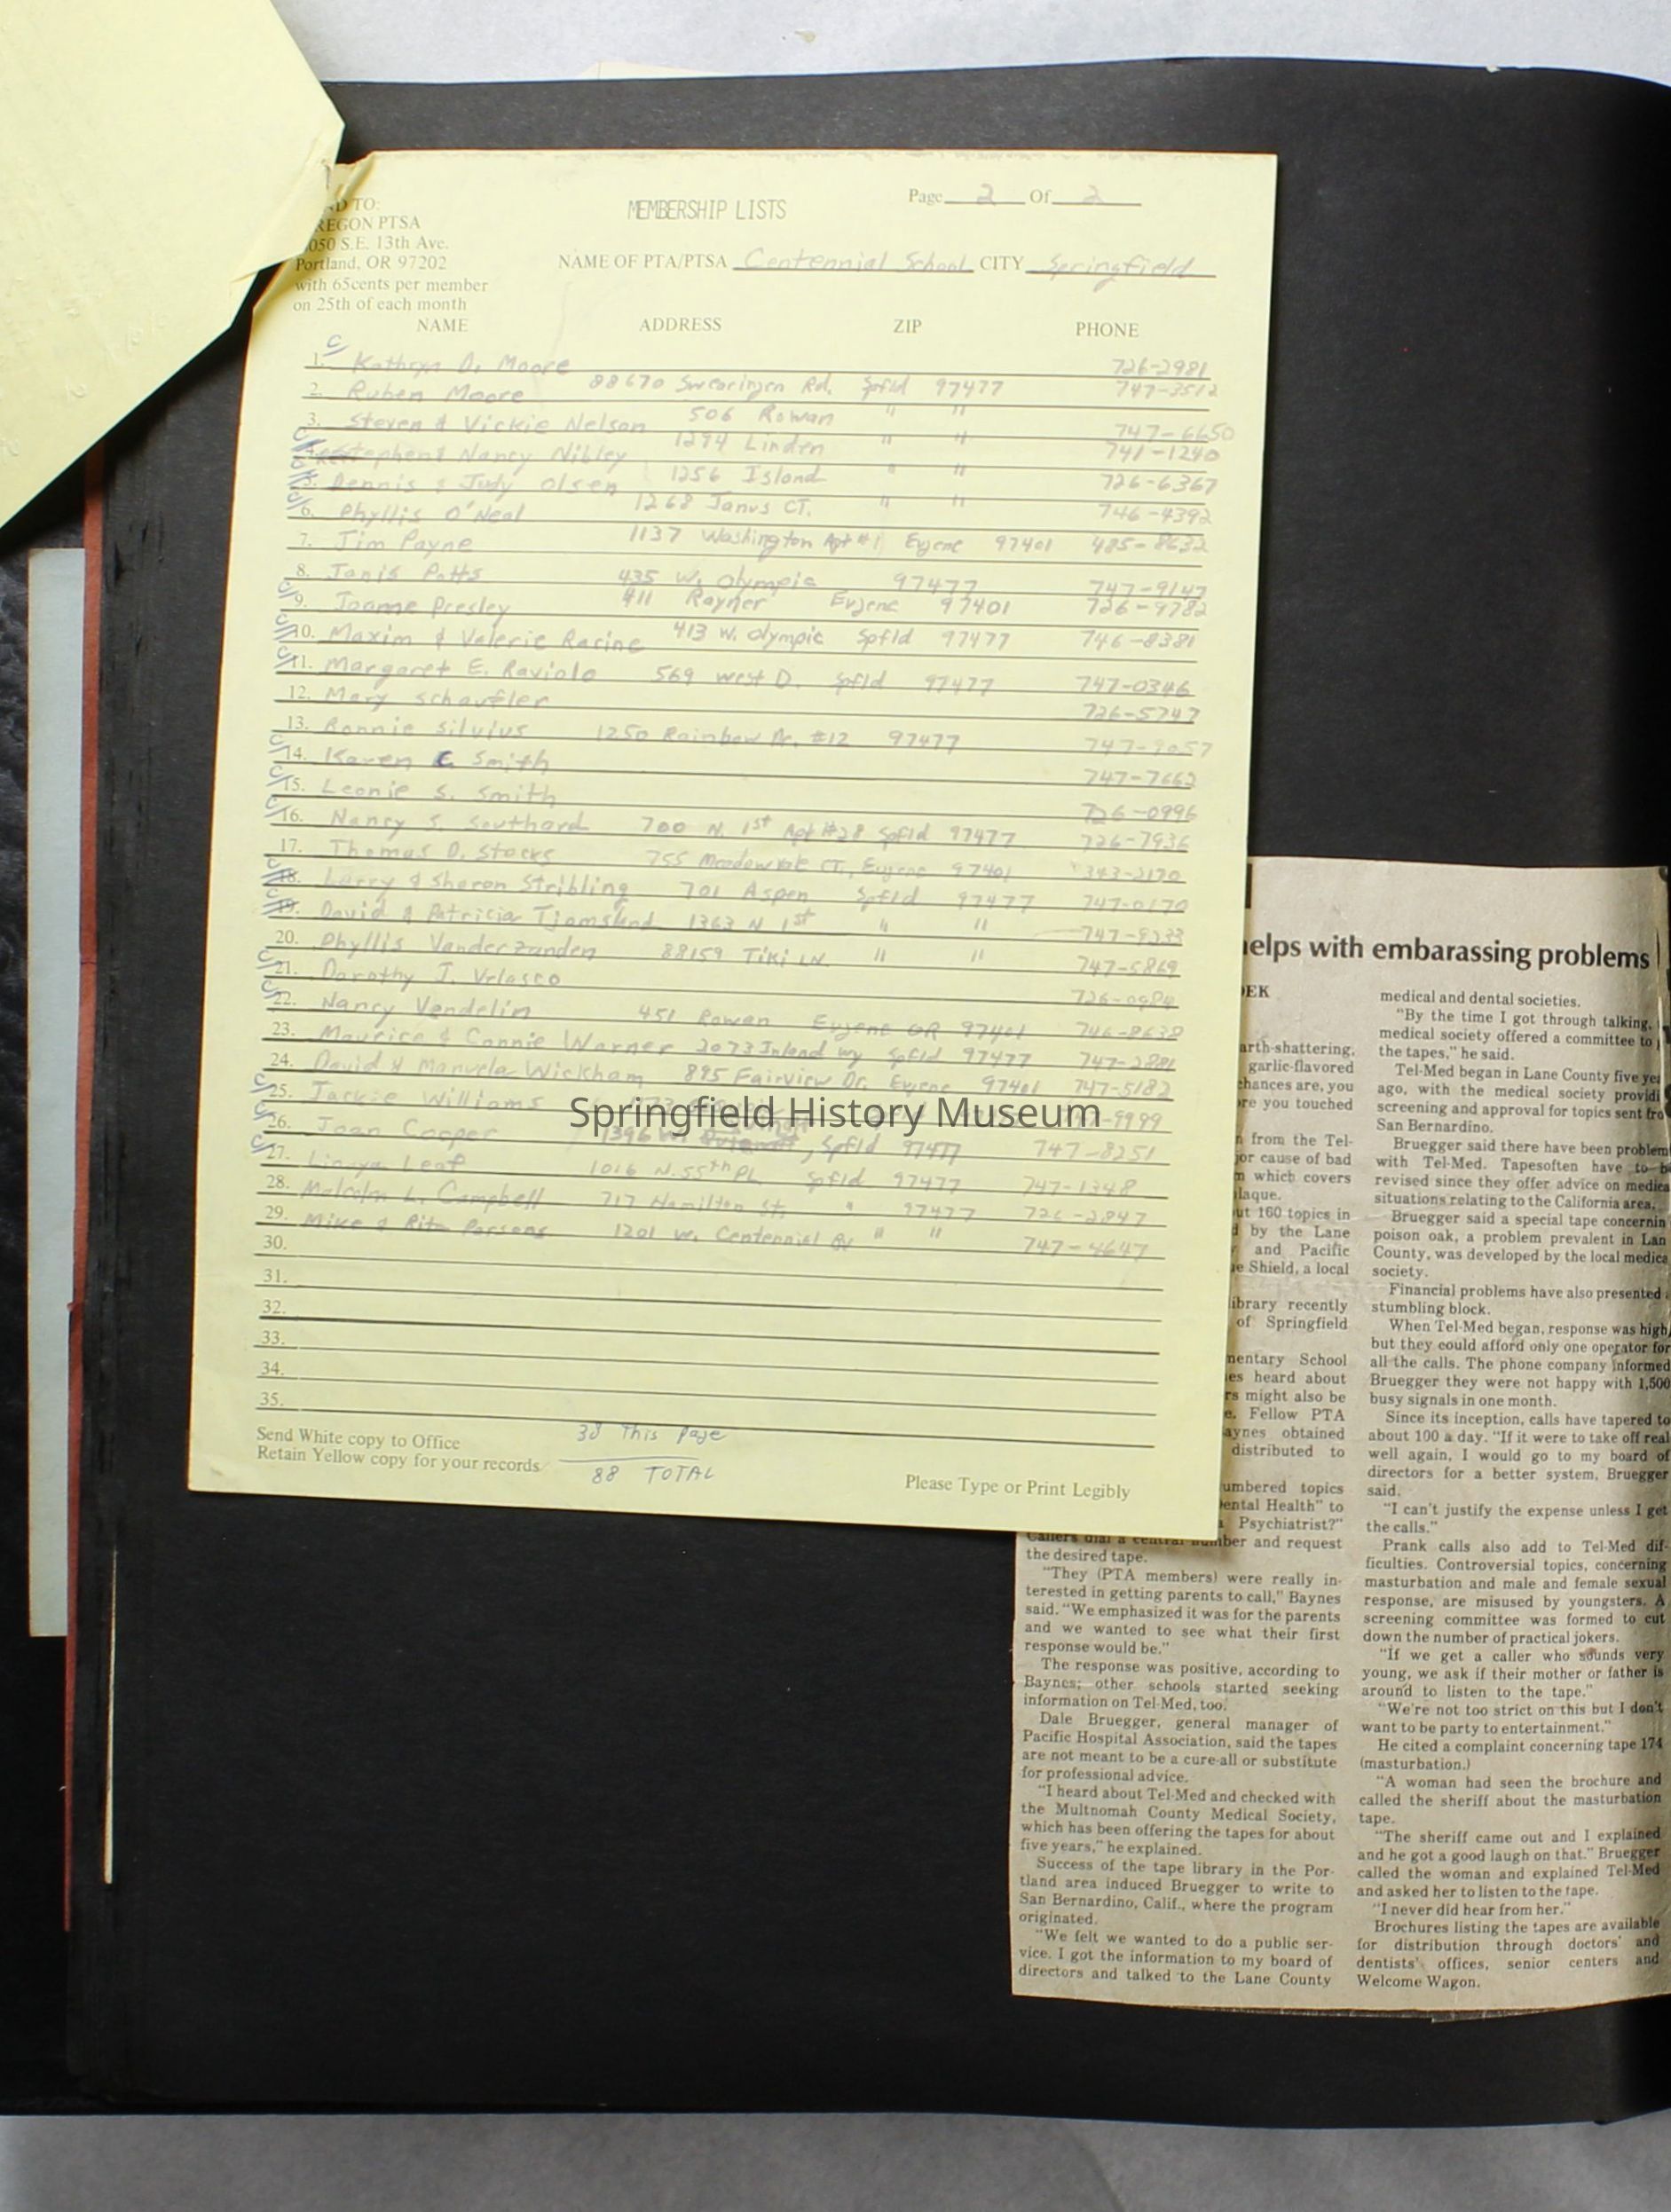 D TO:
REGON PTSA
050 S.E. 13th Ave.
Portland, OR 97202
with 65cents per member
on 25th of each month
MEMBERSHIP LISTS
Page 2 Of 2
NAME OF PTA/PTSA Centennial School CITY Springfield
NAME ADDRESS ZIP PHONE
1. Kathryn D. Moore 726-2981
2. Ruben Moore 88670 Swearingen Rd. Spfld 97477 747-3512
3. Steven & Vickie Nelson 506 Rowan " " 747-6650
Stephen & Nancy Nibley 1294 Linden " " 741-1240
5. Dennis & Judy Olsen 1256 Island " " 726-6367
6. Phyllis O'Neal 1268 Janus CT. " " 746-4392
7. Jim Payne 1137 Washington Apt #1 Eugene 97401 485-8632
8. Janis Potts 435 W. Olympic 97477 747-9147
9. Joanne Presley 411 Rayner Eugene 97401 726-9782
10. Maxim & Valerie Racine 413 W. Olympic Spfld 97477 746-8381
11. Margaret E. Raviolo 569 West D. Spfld 97477 747-0346
12. Mary Schaufler 726-5747
13. Ronnie Silvius 1250 Rainbow Dr. #12 97477 747-9057
14. Karen C. Smith 747-7662
15. Leonie S. Smith 726-0996
16. Nancy S. Southard 700 N. 1st Apt #28 Spfld 97477 726-7936
17. Thomas D. Stocks 755 CT., Eugene 97401 343-2170
18. Larry & Sharon Stribling 701 Aspen Spfld 97477 747-0170
19. David & Patricia Tjomsland 1363 N 1st " " 747-9233
20. Phyllis Vanderzanden 88159 Tiki LN. " " 747-5869
21. Dorothy J. Velasco 726-0984
22. Nancy Vendelin 451 Rowan Eugene OR 97401 746-8638
23. Maurice & Connie Warner 2073 Inland Wy Spfld 97477 747-2881
24. David & Manuela Wickham 895 Fairview Dr. Eugene 97401 747-5182
25. Jackie Williams -9999
26. Joan Cooper 1396 W. , Spfld 97477 747-8251
27. Leaf 1016 N. 55th PL. Spfld 97477 747-1348
28. Malcolm L. Campbell 717 Hamilton St. " 97477 726-2847
29. Mike & Rita Parsons 1201 W. Centennial Bv " " 747-4647
30.
31.
32.
33.
34.
35.
Send White copy to Office
Retain Yellow copy for your records
38 This Page
88 TOTAL
Please Type or Print Legibly
Springfield History Museum
elps with embarassing problems
EK
arth-shattering,
garlic-flavored
chances are, you
re you touched
from the Tel-
or cause of bad
which covers
laque.
ut 160 topics in
d by the Lane
and Pacific
e Shield, a local
ibrary recently
of Springfield
mentary School
es heard about
rs might also be
e. Fellow PTA
aynes obtained
distributed to
umbered topics
ental Health" to
Psychiatrist?"
Callers dial a central number and request
the desired tape.
"They (PTA members) were really in-
terested in getting parents to call," Baynes
said. "We emphasized it was for the parents
and we wanted to see what their first
response would be."
The response was positive, according to
Baynes; other schools started seeking
information on Tel-Med, too.
Dale Bruegger, general manager of
Pacific Hospital Association, said the tapes
are not meant to be a cure-all or substitute
for professional advice.
"I heard about Tel-Med and checked with
the Multnomah County Medical Society,
which has been offering the tapes for about
five years," he explained.
Success of the tape library in the Por-
tland area induced Bruegger to write to
San Bernardino, Calif., where the program
originated.
"We felt we wanted to do a public ser-
vice. I got the information to my board of
directors and talked to the Lane County
medical and dental societies.
"By the time I got through talking,
medical society offered a committee to
the tapes," he said.
Tel-Med began in Lane County five yea
ago, with the medical society providi
screening and approval for topics sent fro
San Bernardino.
Bruegger said there have been problem
with Tel-Med. Tapesoften have to b
revised since they offer advice on medica
situations relating to the California area.
Bruegger said a special tape concernin
poison oak, a problem prevalent in Lan
County, was developed by the local medica
society.
Financial problems have also presented
stumbling block.
When Tel-Med began, response was high,
but they could afford only one operator for
all the calls. The phone company informed
Bruegger they were not happy with 1,500
busy signals in one month.
Since its inception, calls have tapered to
about 100 a day. "If it were to take off real
well again, I would go to my board of
directors for a better system, Bruegger
said.
"I can't justify the expense unless I get
the calls."
Prank calls also add to Tel-Med dif-
ficulties. Controversial topics, concerning
masturbation and male and female sexual
response, are misused by youngsters. A
screening committee was formed to cut
down the number of practical jokers.
"If we get a caller who sounds very
young, we ask if their mother or father is
around to listen to the tape."
"We're not too strict on this but I don't
want to be party to entertainment."
He cited a complaint concerning tape 174
(masturbation.)
"A woman had seen the brochure and
called the sheriff about the masturbation
tape.
"The sheriff came out and I explained
and he got a good laugh on that." Bruegger
called the woman and explained Tel-Med
and asked her to listen to the tape.
"I never did hear from her."
Brochures listing the tapes are available
for distribution through doctors' and
dentists' offices, senior centers and
Welcome Wagon.